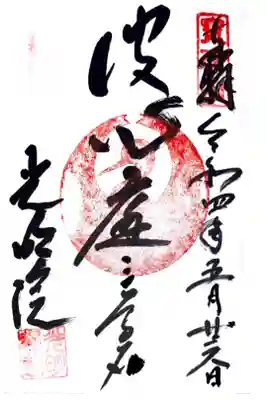 奉拝 令和四年五月廿六日
波心庭
光明院